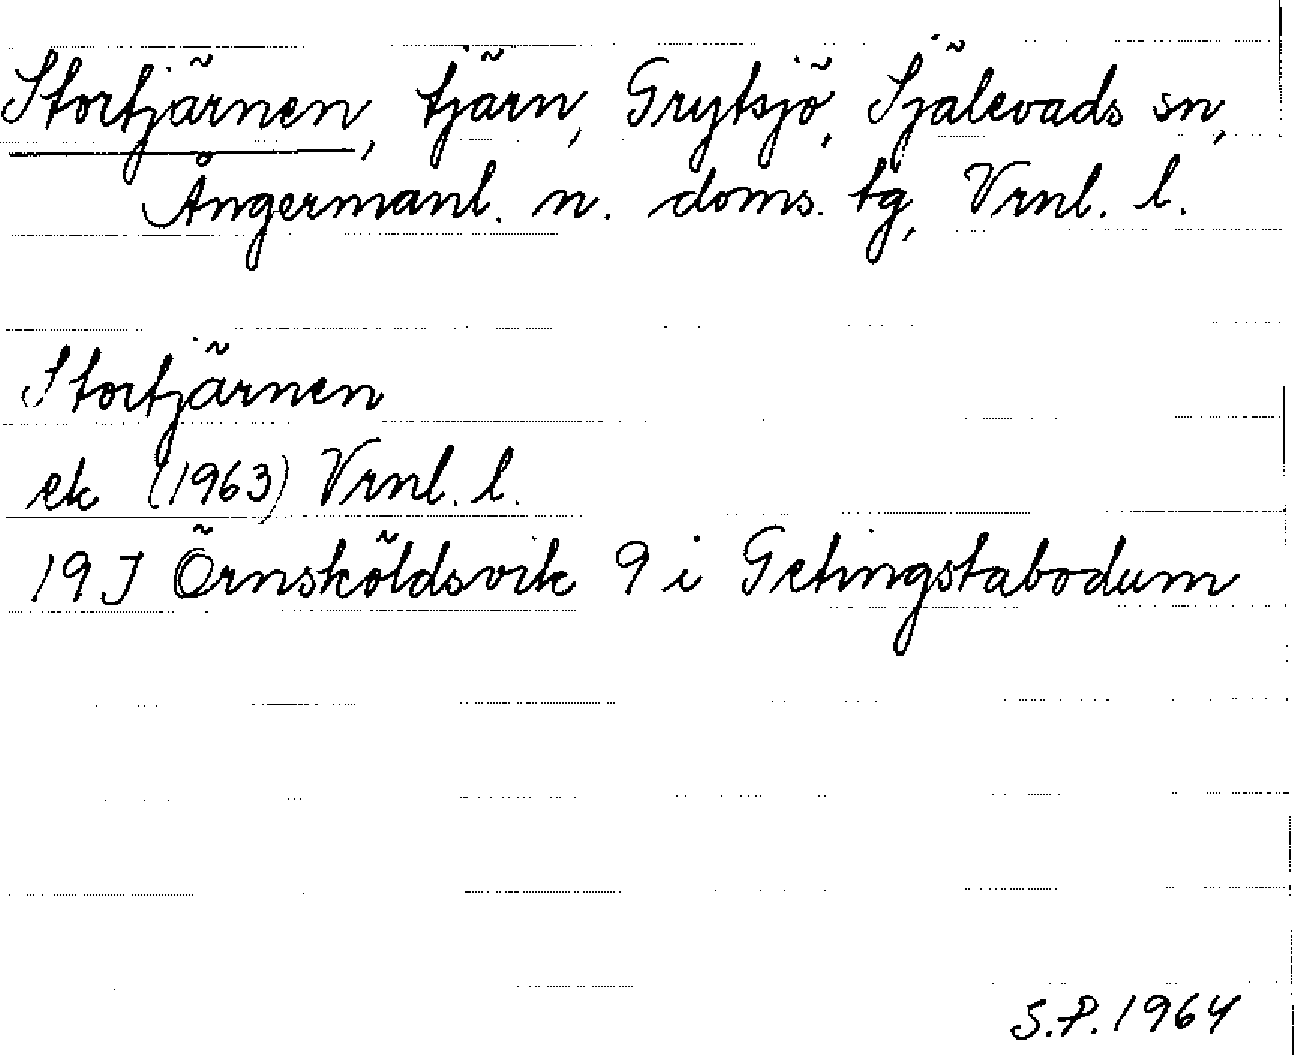 Stortjärnen, tjärn, Grytsjö, Själevads sn,
Ångermanl. n. doms. tg, Vrnl. l.
Stortjärnen
ek (1963) Vrnl. l.
19J Örnsköldsvik 9 i Getingstabodum
S.P. 1964